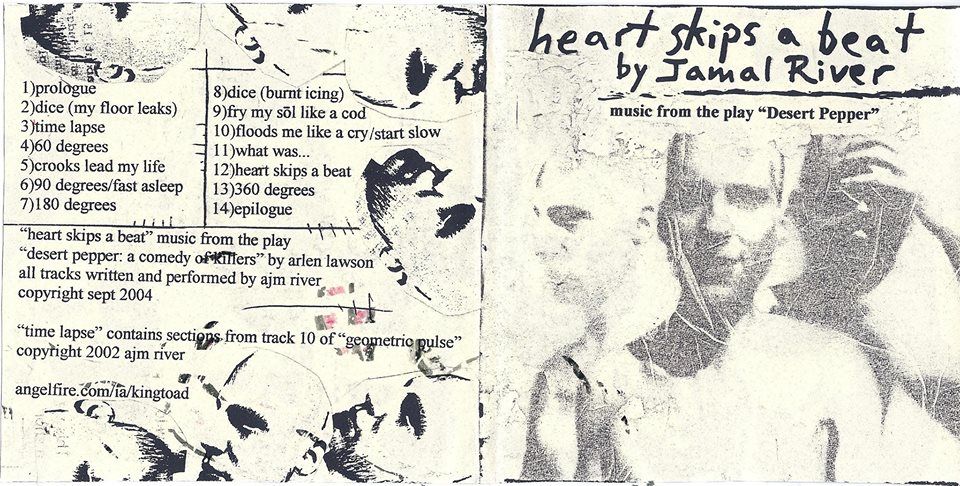 1)prologue
2)dice (my floor leaks)
3)time lapse
4)60 degrees
5)crooks lead my life
6)90 degrees/fast asleep
7)180 degrees
8)dice (burnt icing)
9)fry my sōl like a cod
10)floods me like a cry/start slow
11)what was...
12)heart skips a beat
13)360 degrees
14)epilogue
“heart skips a beat” music from the play
“desert pepper: a comedy of killers” by arlen lawson
all tracks written and performed by ajm river
copyright sept 2004
“time lapse” contains sections from track 10 of “geometric pulse”
copyright 2002 ajm river
angelfire.com/ia/kingtoad
heart skips a beat
by Jamal River
music from the play “Desert Pepper”